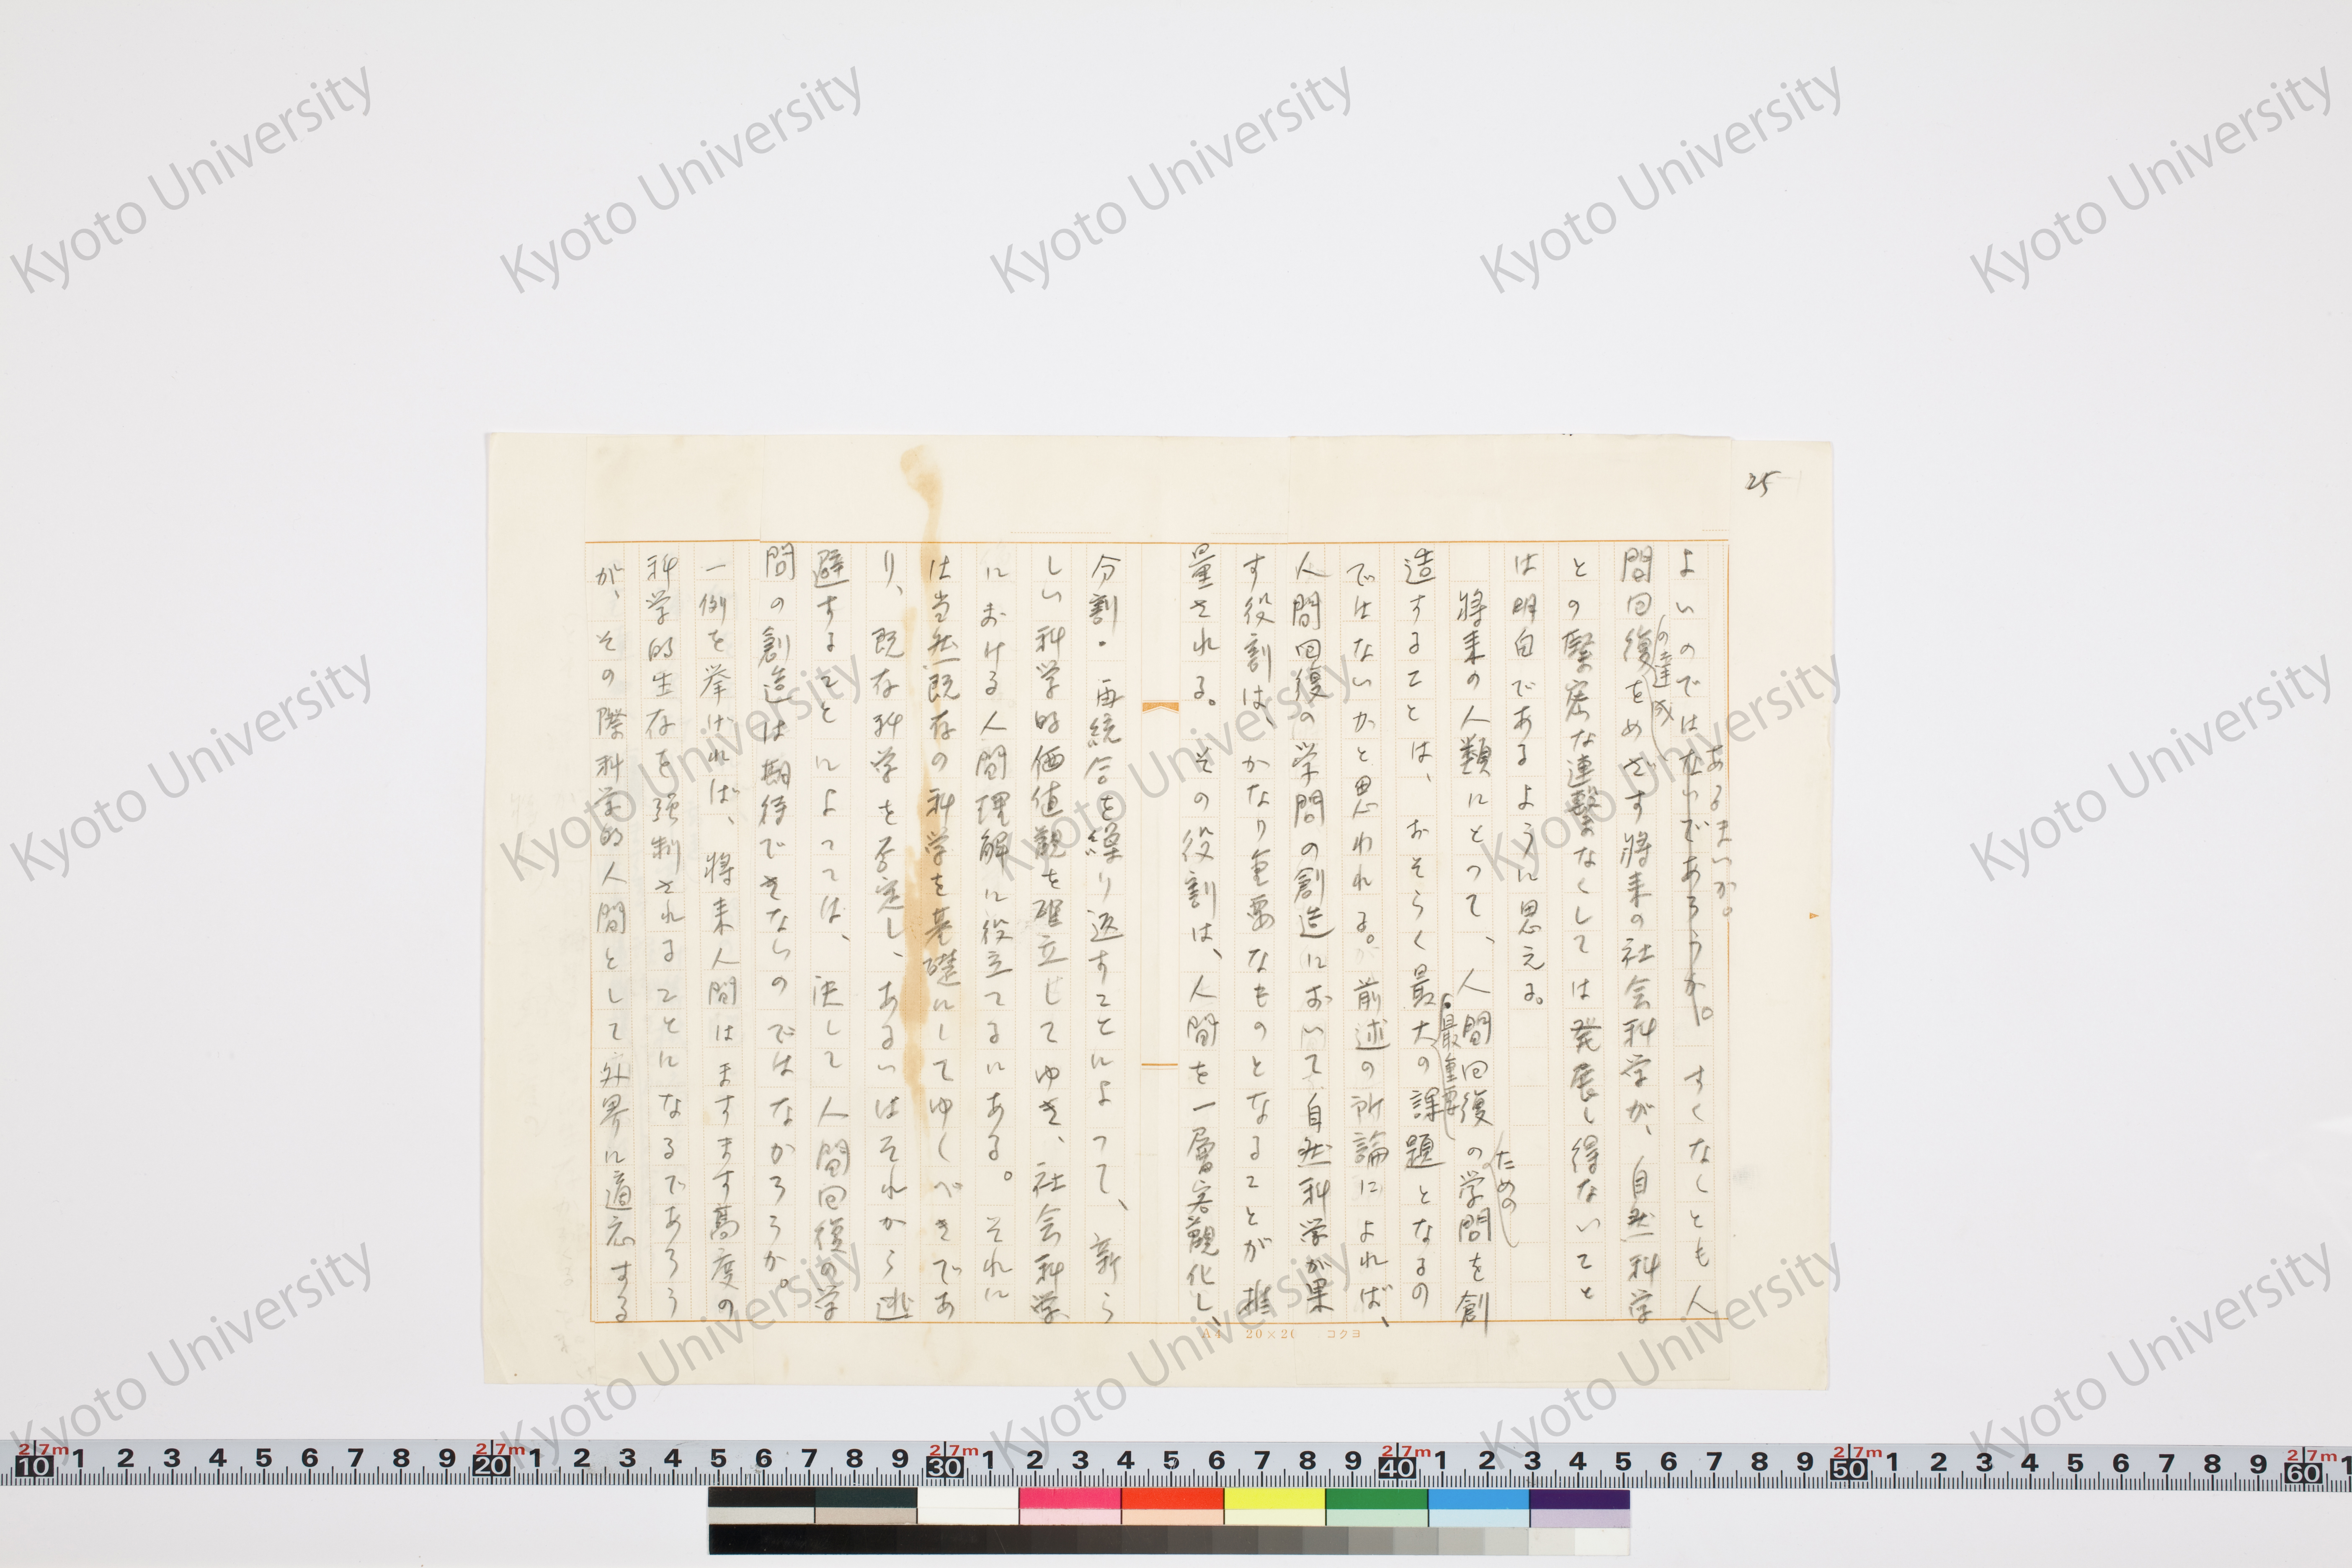 25
よいのではないであろうか。すくなくとも人
あるまいか。
間回復をめざす将来の社会科学が、自然科学
の達成
との緊密な連繋なくしては発展し得ないこと
は明白であるように思える。
将来の人類にとって、人間回復の学問を創
ための
造することは、おそらく最大の課題となるの
最重要
ではないかと思われる。前述の所論によれば、
人間回復の学問の創造において自然科学が果
す役割は、かなり重要なものとなることが推
量される。その役割は、人間を一層客観化し、
分割・再統合を繰り返すことによって、新ら
しい科学的価値観を確立してゆき、社会科学
における人間理解に役立てるにある。それに
は当然既存の科学を基礎にしてゆくべきであ
り、既存科学を否定し、あるいはそれから逃
避することによっては、決して人間回復の学
問の創造は期待できないのではなかろうか。
一例を挙げれば、将来人間はますます高度の
科学的生存を強制されることになるであろう
が、その際科学的人間として外界に適応する
A4 20×20 コクヨ
Kyoto University